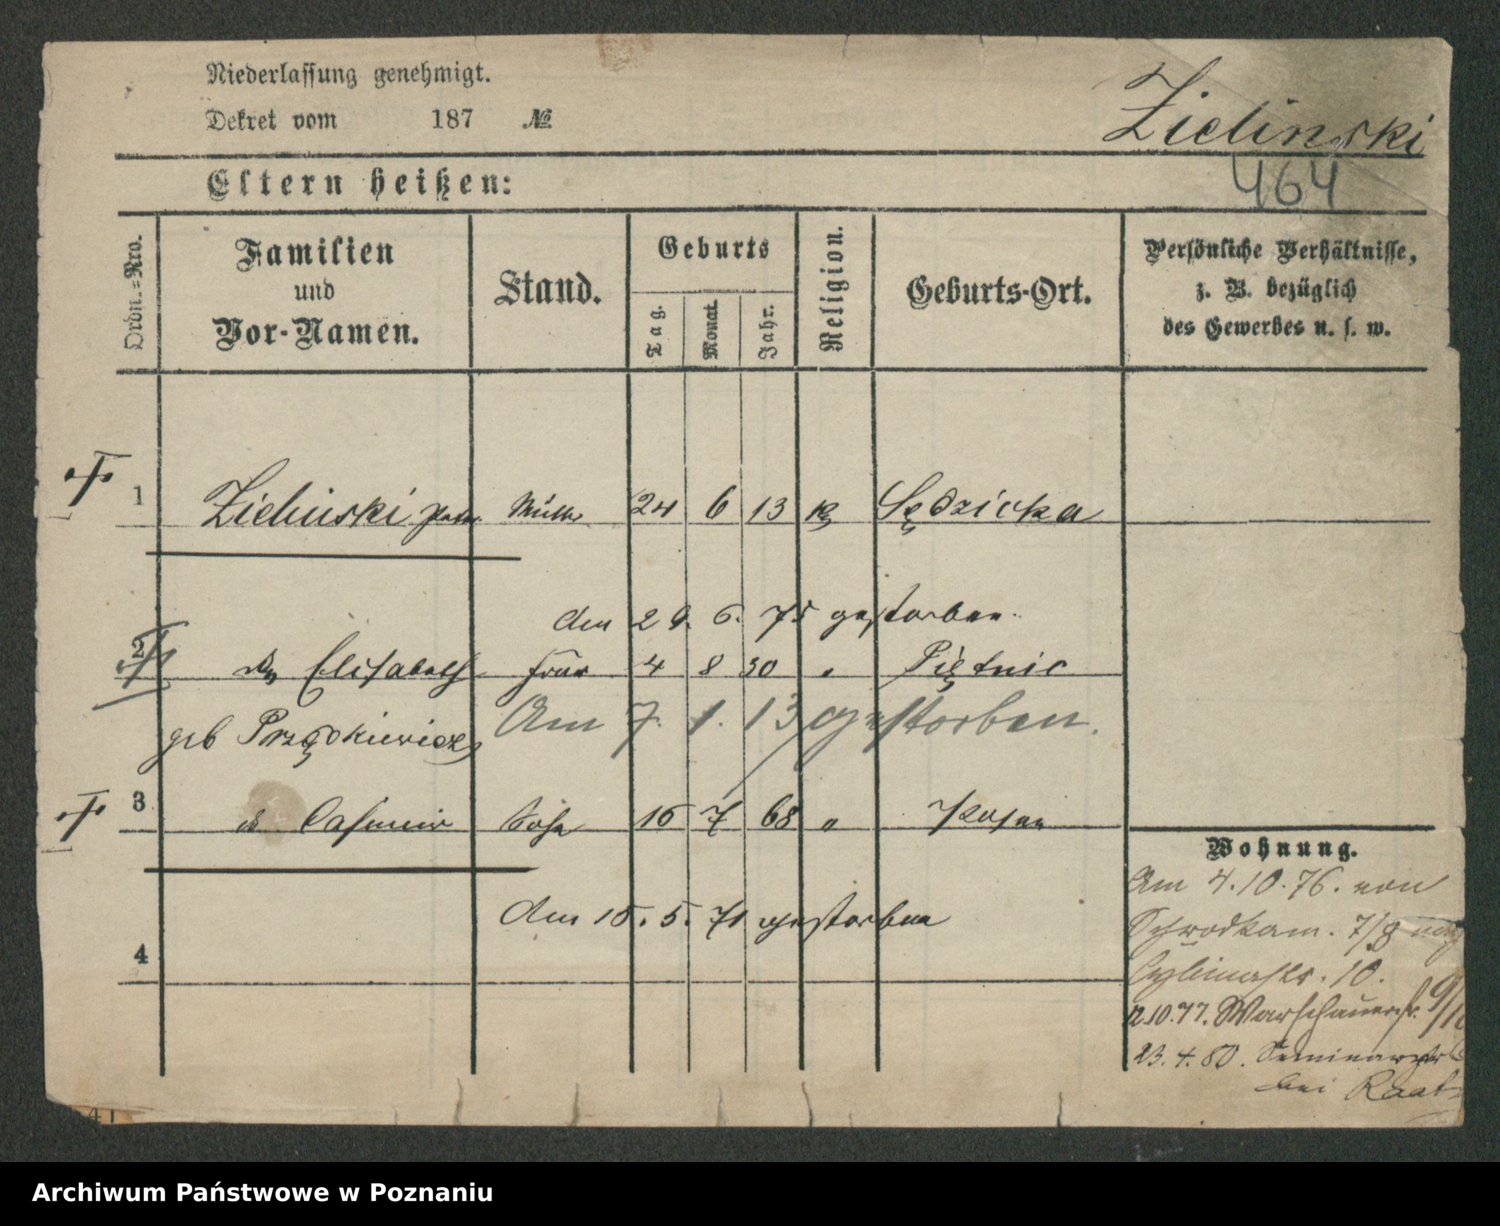 Niederlassung genehmigt.
Dekret vom 187 №
Zielinski
Eltern heißen:
464
Ordn.=Nro.
Familien
und
Vor-Namen.
Stand.
Geburts
Tag.
Monat.
Jahr.
Religion.
Geburts-Ort.
Persönliche Verhältnisse,
z. B. bezüglich
des Gewerbes u. s. w.
1 Zielinski Peter Müller 24 6 13 k Sędzicka
Am 29. 6. 75 gestorben.
2 Elisabeth Frau 4 8 30 " Piętnic
geb Przędkiewicz
Am 7. 1. 13 gestorben.
3 Casimir Sohn 16 7 68 " Posen
Am 15. 5. 71 gestorben
4
Wohnung.
Am 4.10.76. von
Schrodkam. 7/8 nach
Cybinastr. 10.
12.10.77. Warschauerstr. 9/10
23. 4. 80. Seminarstr
bei Raatz
41
Archiwum Państwowe w Poznaniu